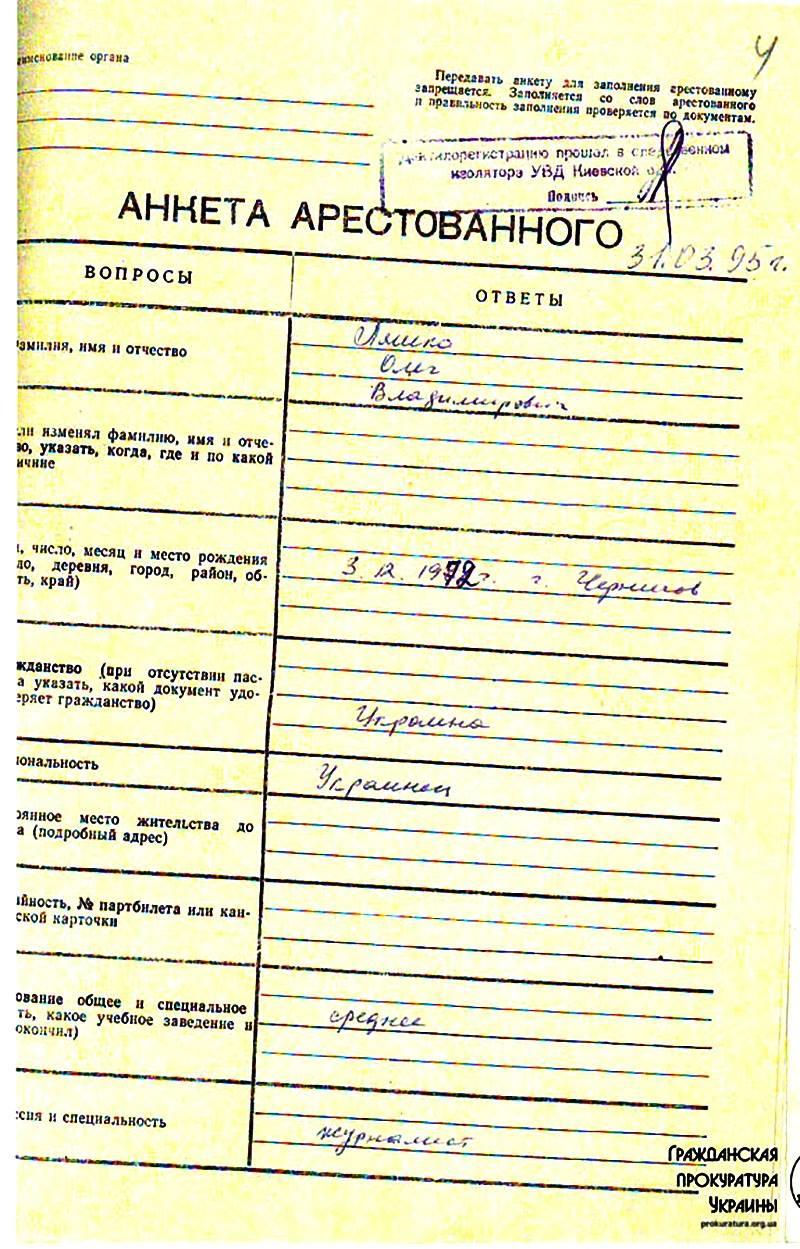 4
аименование органа
Передавать анкету для заполнения арестованному
запрещается. Заполняется со слов арестованного
и правильность заполнения проверяется по документам.
Дактилорегистрацию прошел в следственном
изоляторе УВД Киевской обл.
Подпись
АНКЕТА АРЕСТОВАННОГО
31.03.95г.
ВОПРОСЫ
ОТВЕТЫ
амилия, имя и отчество
Ляшко
Олег
Владимирович
ли изменял фамилию, имя и отче-
во, указать, когда, где и по какой
ичине
, число, месяц и место рождения
ло, деревня, город, район, об-
ть, край)
3.12.1972г. г. Чернигов
жданство (при отсутствии пас-
а указать, какой документ удо-
еряет гражданство)
Украина
иональность
Украинец
оянное место жительства до
а (подробный адрес)
йность, № партбилета или кан-
ской карточки
ование общее и специальное
ть, какое учебное заведение и
окончил)
среднее
ссия и специальность
журналист
ГРАЖДАНСКАЯ
ПРОКУРАТУРА
УКРАИНЫ
prokuratura.org.ua